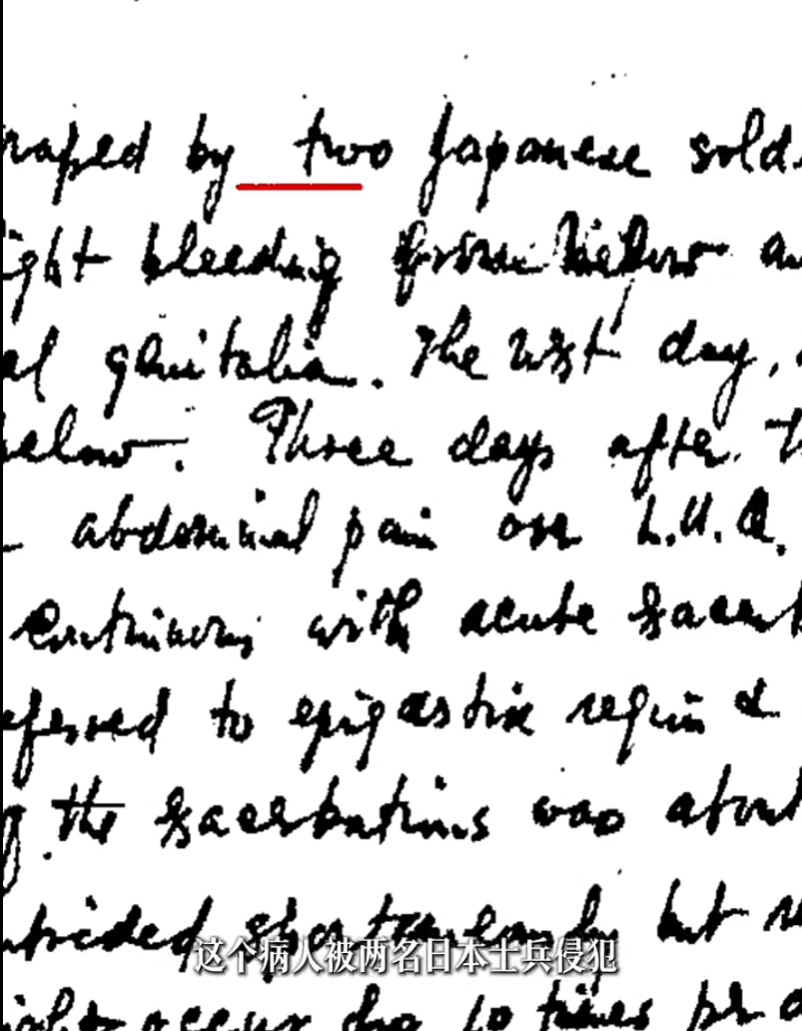 raped by two Japanese sold
ight bleeding from below a
al genitalia. The next day,
below. Three days after t
abdominal pain on L.U.Q.
continuous with acute exacerb
eferred to epigastric region &
the exacerbations was about
but
occur to 10 times
这个病人被两名日本士兵侵犯